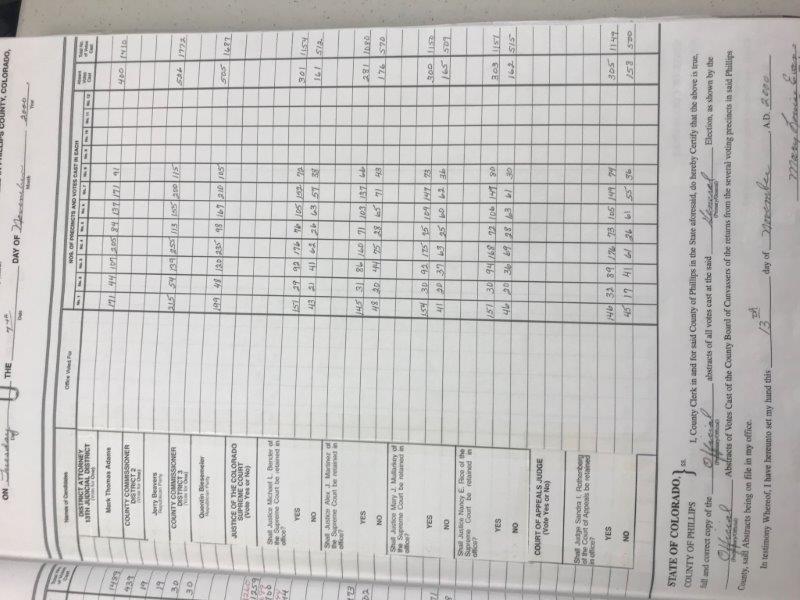 IN PHILLIPS COUNTY, COLORADO,
ON Tuesday THE 7th DAY OF November 2000
Day Date Month Year
Names of Candidates Office Voted For NOS. OF PRECINCTS AND VOTES CAST IN EACH Absent Votes Cast Total No. of Votes Cast
No. 1 No. 2 No. 3 No. 4 No. 5 No. 6 No. 7 No. 8 No. 9 No. 10 No. 11 No. 12
DISTRICT ATTORNEY
13TH JUDICIAL DISTRICT
(Vote for One)
Mark Thomas Adams 171 44 107 205 84 137 171 91 400 1410
COUNTY COMMISSIONER
DISTRICT 2
(Vote for One)
Jerry Beavers 215 54 139 255 113 155 200 115 526 1772
Republican Party
COUNTY COMMISSIONER
DISTRICT 3
(Vote for One)
Quentin Biesemeier 199 48 120 235 98 167 210 105 505 1687
Republican Party
JUSTICE OF THE COLORADO
SUPREME COURT
(Vote Yes or No)
Shall Justice Michael L. Bender of
the Supreme Court be retained in
office?
YES 151 29 92 176 76 105 152 72 301 1154
NO 43 21 41 62 26 63 57 38 161 512
Shall Justice Alex J. Martinez of
the Supreme Court be retained in
office?
YES 145 31 86 160 71 103 137 66 281 1080
NO 48 20 44 75 28 65 71 43 176 570
Shall Justice Mary J. Mullarkey of
the Supreme Court be retained in
office?
YES 154 30 92 175 109 147 73 300 1150
NO 41 20 37 63 25 60 62 36 165 509
Shall Justice Nancy E. Rice of the
Supreme Court be retained in
office?
YES 151 30 94 168 72 106 149 80 303 1157
NO 46 20 36 69 28 63 61 30 162 515
COURT OF APPEALS JUDGE
(Vote Yes or No)
Shall Judge Sandra I. Rothenberg
of the Court of Appeals be retained
in office?
YES 146 32 89 176 73 105 149 74 305 1149
NO 45 17 41 61 26 61 55 36 158 500
STATE OF COLORADO, } ss.
COUNTY OF PHILLIPS
I, County Clerk in and for said County of Phillips in the State aforesaid, do hereby Certify that the above is true,
full and correct copy of the Official abstracts of all votes cast at the said General Election, as shown by the
Official Abstracts of Votes Cast of the County Board of Canvassers of the returns from the several voting precincts in said Phillips
County, said Abstracts being on file in my office.
In testimony Whereof, I have hereunto set my hand this 13th day of November A.D. 2000
1489
439
19
19
30
30